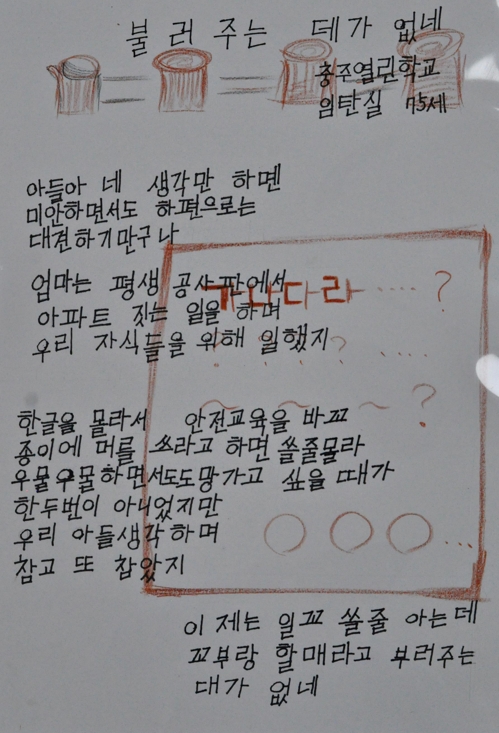 불러주는 데가 없네
충주열린학교
임탄실 75세
아들아 네 생각만 하면
미안하면서도 하편으로는
대견하기만구나
엄마는 평생 공사판에서
아파트 짓는 일을 하며
우리 자식들을 위해 일했지
가나다라 ‥‥ ?
? ‥‥
?
한글을 몰라서 안전교육을 바꼬
종이에 머를 쓰라고 하면 쓸줄몰라
우물우물하면서도도망가고 싶을 때가
한두번이 아니었지만
우리 아들생각하며
참고 또 참았지
이제는 일꼬 쓸줄 아는데
꼬부랑 할매라고 부러주는
대가 없네